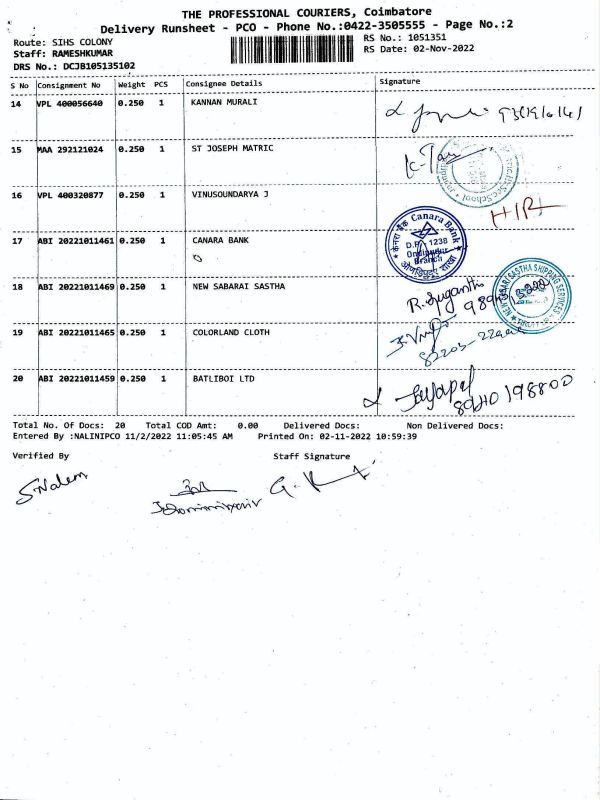 THE PROFESSIONAL COURIERS, Coimbatore
Delivery Runsheet - PCO - Phone No.:0422-3505555 - Page No.:2
Route: SIHS COLONY
RS No.: 1051351
Staff: RAMESHKUMAR
RS Date: 02-Nov-2022
DRS No.: DCJB105135102
S No Consignment No Weight PCS Consignee Details Signature
14 VPL 400056640 0.250 1 KANNAN MURALI
15 MAA 292121024 0.250 1 ST JOSEPH MATRIC
16 VPL 400320877 0.250 1 VINUSOUNDARYA J
17 ABI 20221011461 0.250 1 CANARA BANK
केनरा बैंक Canara Bank
D.P. 1238
Branch
18 ABI 20221011469 0.250 1 NEW SABARAI SASTHA
R. Suganthi
NEW SABARI SASTHA SHIPPING SERVICES
19 ABI 20221011465 0.250 1 COLORLAND CLOTH
20 ABI 20221011459 0.250 1 BATLIBOI LTD
Total No. Of Docs: 20 Total COD Amt: 0.00 Delivered Docs: Non Delivered Docs:
Entered By :NALINIPCO 11/2/2022 11:05:45 AM Printed On: 02-11-2022 10:59:39
Verified By Staff Signature